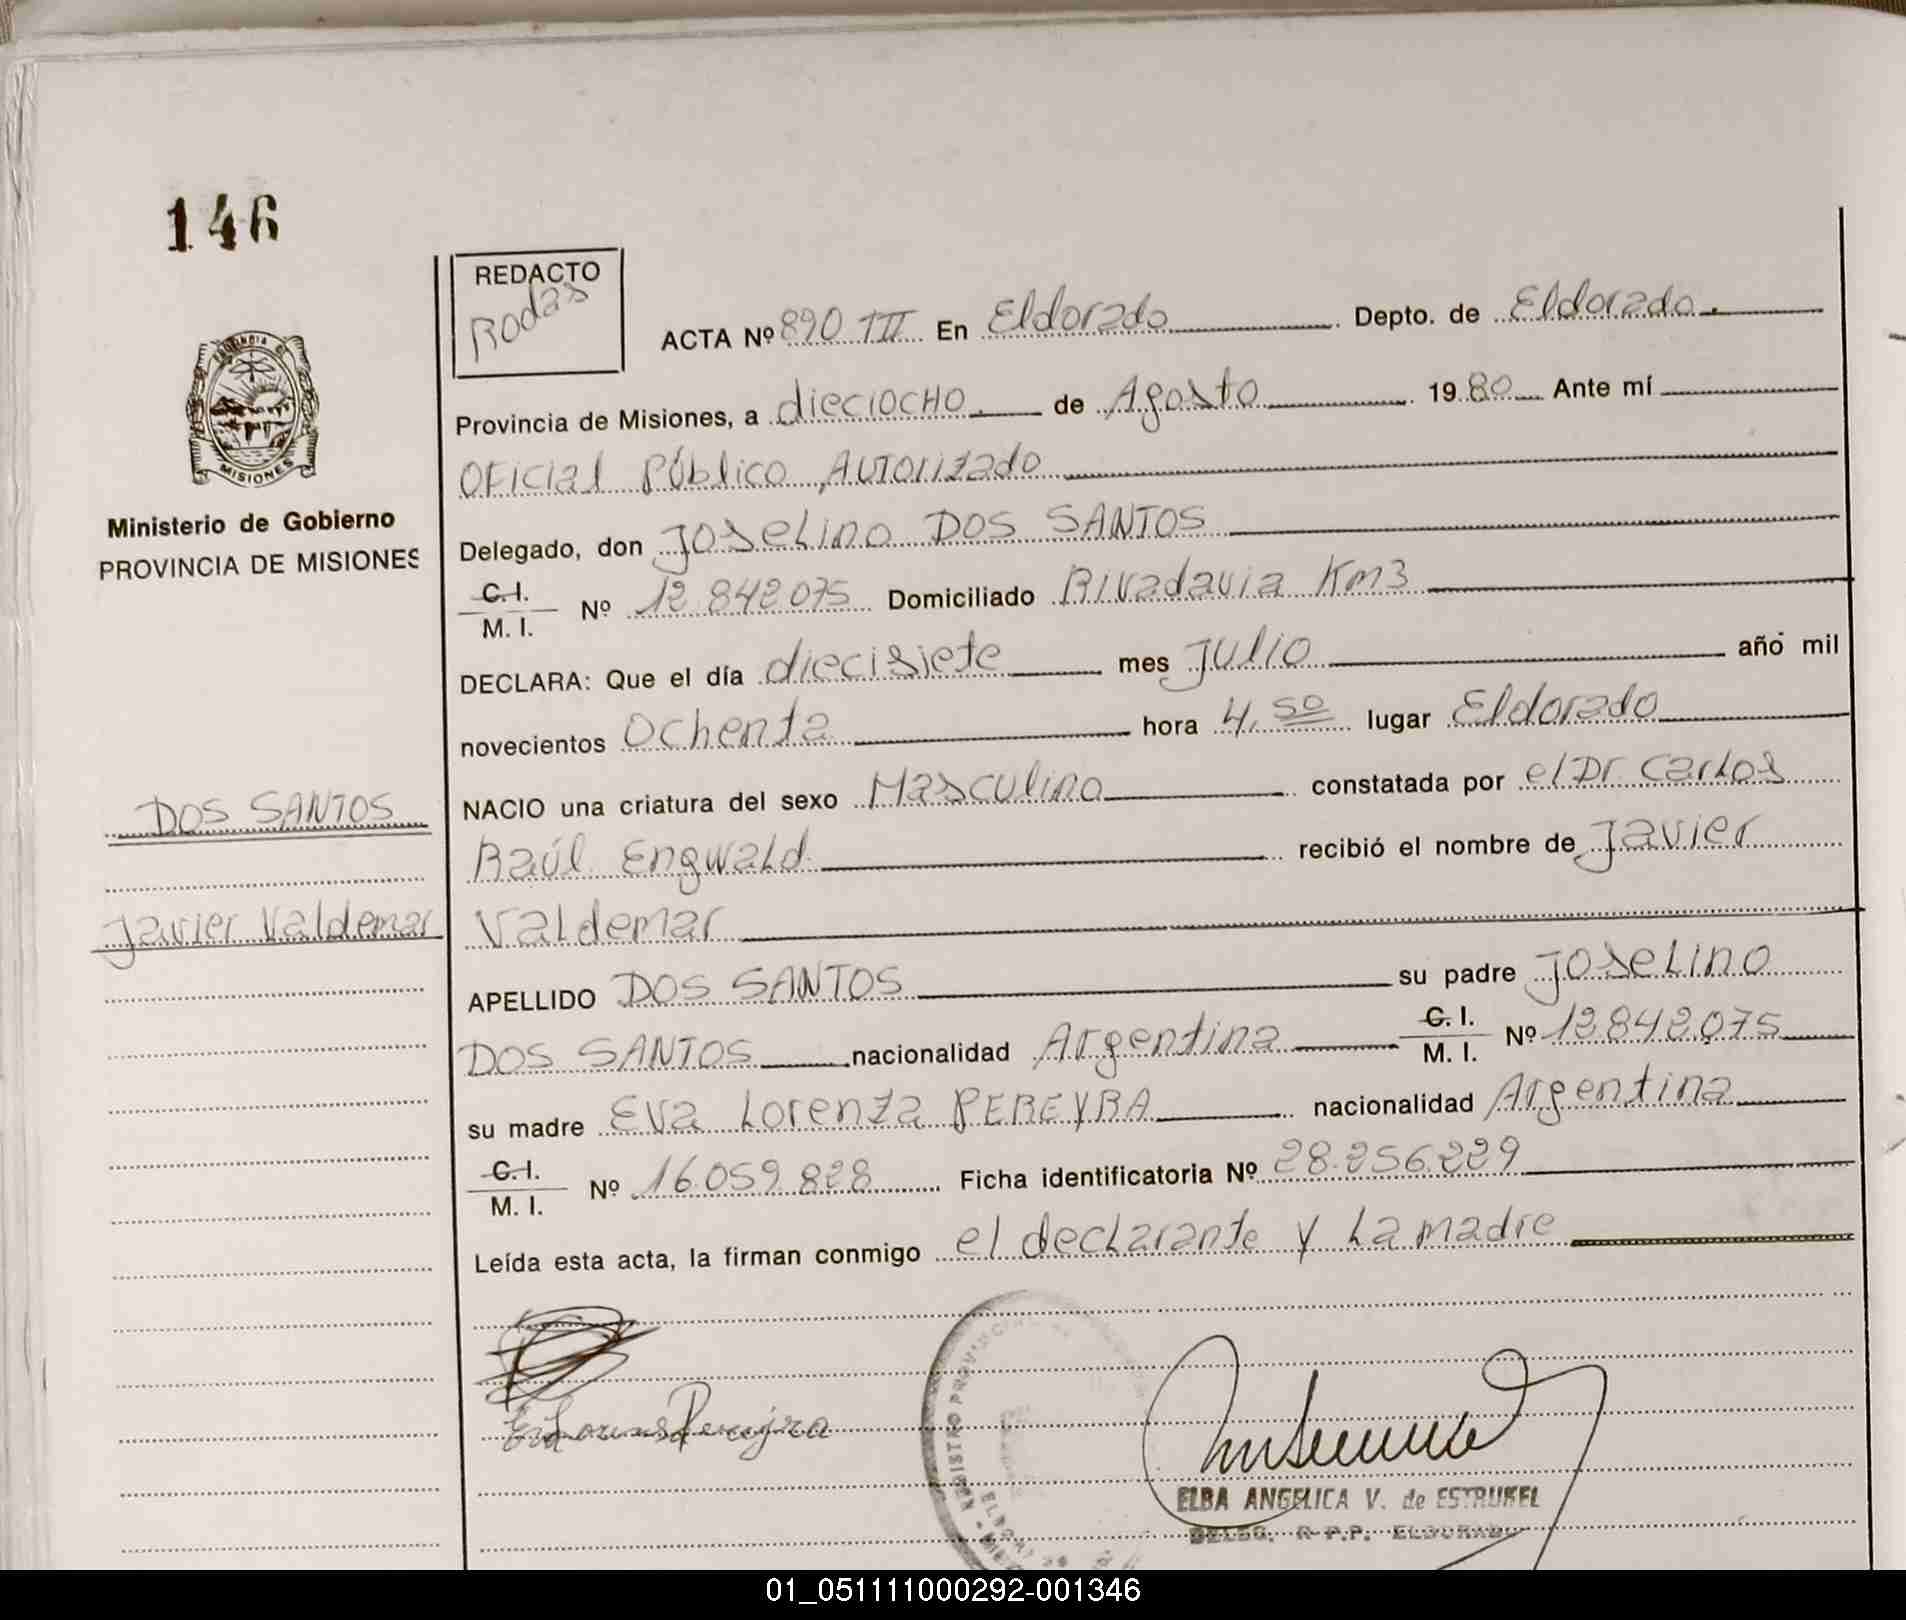 146
REDACTO
Rodas
ACTA Nº 890 TIII En Eldorado Depto. de Eldorado.
PROVINCIA DE
MISIONES
Ministerio de Gobierno
PROVINCIA DE MISIONES
Provincia de Misiones, a dieciocho de Agosto 1980 Ante mí
Oficial Público Autorizado
Delegado, don Joselino DOS SANTOS
C. I.
M. I. Nº 12.842.075 Domiciliado Rivadavia Km3
DECLARA: Que el día diecisiete mes Julio año mil
novecientos Ochenta hora 4,50 lugar Eldorado
NACIO una criatura del sexo Masculino constatada por el Dr. Carlos
Raúl Engwald recibió el nombre de Javier
Valdemar
DOS SANTOS
Javier Valdemar
APELLIDO DOS SANTOS su padre Joselino
DOS SANTOS nacionalidad Argentina C. I.
M. I. Nº 12.842.075
su madre Eva Lorenza PEREYRA nacionalidad Argentina
C. I.
M. I. Nº 16.059.828 Ficha identificatoria Nº 28.256.229
Leída esta acta, la firman conmigo el declarante y La madre
Pereyra
ELBA ANGELICA V. de ESTRUKEL
DELEG. R.P.P. ELDORADO
01_051111000292-001346